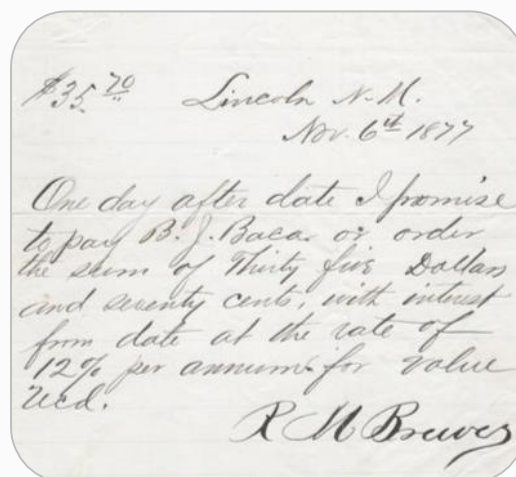 $35.70
Lincoln N.M.
Nov. 6th 1877
One day after date I promise
to pay B. J. Baca. or order
the sum of Thirty five Dollars
and seventy cents, with interest
from date at the rate of
12% per annum for value
Recd.
R M Brewer